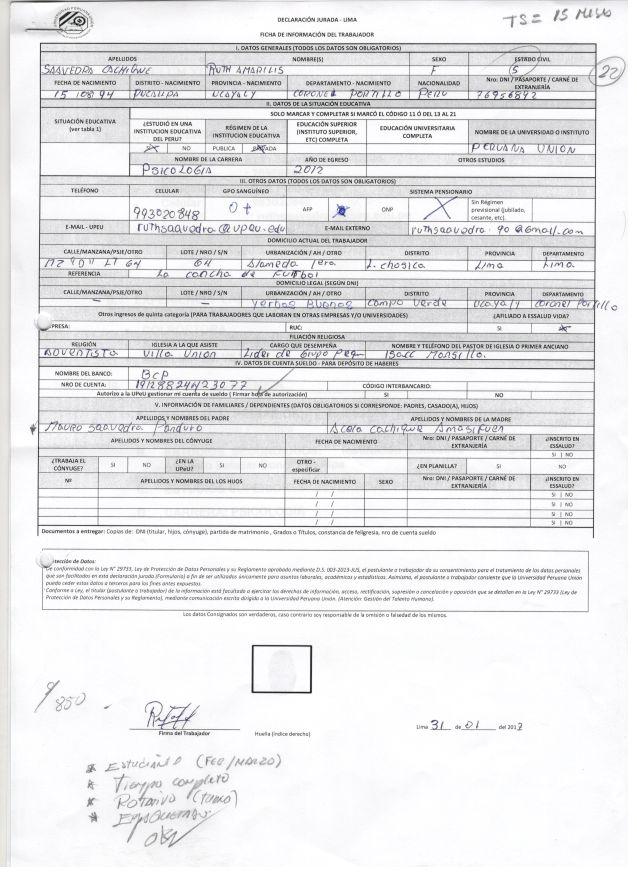 DECLARACIÓN JURADA - LIMA
TS = 15 Meses
FICHA DE INFORMACIÓN DEL TRABAJADOR
I. DATOS GENERALES (TODOS LOS DATOS SON OBLIGATORIOS)
APELLIDOS NOMBRE(S) SEXO ESTADO CIVIL
SAAVEDRA CACHIQUE RUTH AMARILIS F (S) 22
FECHA DE NACIMIENTO DISTRITO - NACIMIENTO PROVINCIA - NACIMIENTO DEPARTAMENTO - NACIMIENTO NACIONALIDAD Nro: DNI / PASAPORTE / CARNÉ DE EXTRANJERÍA
15/08/94 PUCALLPA UCAYALY CORONEL PORTILLO PERU 76956892
II. DATOS DE LA SITUACIÓN EDUCATIVA
SOLO MARCAR Y COMPLETAR SI MARCÓ EL CÓDIGO 11 Ó DEL 13 AL 21
SITUACIÓN EDUCATIVA (ver tabla 1) ¿ESTUDIÓ EN UNA INSTITUCION EDUCATIVA DEL PERU? RÉGIMEN DE LA INSTITUCIÓN EDUCATIVA EDUCACIÓN SUPERIOR (INSTITUTO SUPERIOR, ETC) COMPLETA EDUCACIÓN UNIVERSITARIA COMPLETA NOMBRE DE LA UNIVERSIDAD O INSTITUTO
NO PUBLICA PRIVADA PERUANA UNION
NOMBRE DE LA CARRERA AÑO DE EGRESO OTROS ESTUDIOS
PSICOLOGIA 2012
III. OTROS DATOS (TODOS LOS DATOS SON OBLIGATORIOS)
TELÉFONO CELULAR GPO SANGUÍNEO SISTEMA PENSIONARIO
993020848 O+ AFP ONP X Sin Régimen previsional (jubilado, cesante, etc).
E-MAIL - UPEU ruthsaavedra@upeu.edu E-MAIL EXTERNO ruthsaavedra.90@gmail.com
DOMICILIO ACTUAL DEL TRABAJADOR
CALLE/MANZANA/PSJE/OTRO LOTE / NRO / S/N URBANIZACIÓN / AH / OTRO DISTRITO PROVINCIA DEPARTAMENTO
MZ "D" LT 04 04 Alameda 1era L. chosica Lima Lima.
REFERENCIA La concha de Futbol
DOMICILIO LEGAL (SEGÚN DNI)
CALLE/MANZANA/PSJE/OTRO LOTE / NRO / S/N URBANIZACIÓN / AH / OTRO DISTRITO PROVINCIA DEPARTAMENTO
– – Yerbas Buenas Campo Verde Ucayaly Coronel Portillo
Otros ingresos de quinta categoría (PARA TRABAJADORES QUE LABORAN EN OTRAS EMPRESAS Y/O UNIVERSIDADES) ¿AFILIADO A ESSALUD VIDA?
PRESA: RUC: SI
FILIACIÓN RELIGIOSA
RELIGIÓN IGLESIA A LA QUE ASISTE CARGO QUE DESEMPEÑA NOMBRE Y TELÉFONO DEL PASTOR DE IGLESIA O PRIMER ANCIANO
ADVENTISTA. Villa Union Lider de Grupo Peq.
IV. DATOS DE CUENTA SUELDO - PARA DEPÓSITO DE HABERES
NOMBRE DEL BANCO: BCP
NRO DE CUENTA: CÓDIGO INTERBANCARIO:
Autorizo a UPeU gestionar mi cuenta de sueldo ( Firmar hoja de autorización) SI NO
V. INFORMACIÓN DE FAMILIARES / DEPENDIENTES (DATOS OBLIGATORIOS SI CORRESPONDE: PADRES, CASADO(A), HIJOS)
APELLIDOS Y NOMBRES DEL PADRE APELLIDOS Y NOMBRES DE LA MADRE
Mauro Saavedra Panduro Cachique Amasifuen
APELLIDOS Y NOMBRES DEL CÓNYUGE FECHA DE NACIMIENTO Nro: DNI / PASAPORTE / CARNÉ DE EXTRANJERÍA ¿INSCRITO EN ESSALUD?
SI | NO
¿TRABAJA EL CÓNYUGE? SI NO ¿EN LA UPeU? SI NO OTRO - especificar ¿EN PLANILLA? SI NO
Nº APELLIDOS Y NOMBRES DE LOS HIJOS FECHA DE NACIMIENTO SEXO Nro: DNI / PASAPORTE / CARNÉ DE EXTRANJERÍA ¿INSCRITO EN ESSALUD?
/ / SI | NO
/ / SI | NO
/ / SI | NO
/ / SI | NO
Documentos a entregar: Copias de: DNI (titular, hijos, cónyuge), partida de matrimonio , Grados o Títulos, constancia de feligresia, nro de cuenta sueldo
otección de Datos:
De conformidad con la Ley N° 29733, Ley de Protección de Datos Personales y su Reglamento aprobado mediante D.S. 003-2013-JUS, el postulante o trabajador da su consentimiento para el tratamiento de los datos personales
que son facilitados en esta declaración jurada (Formulario) a fin de ser utilizados únicamente para asuntos laborales, académicos y estadísticos. Asimismo, el postulante o trabajador consiente que la Universidad Peruana Unión
pueda ceder estos datos a terceros para los fines antes expuestos.
Conforme a Ley, el titular (postulante o trabajador) de la información está facultado a ejercitar los derechos de información, acceso, rectificación, supresión o cancelación y oposición que se detallan en la Ley N° 29733 (Ley de
Protección de Datos Personales y su Reglamento), mediante comunicación escrita dirigida a la Universidad Peruana Unión. (Atención: Gestión del Talento Humano).
Los datos Consignados son verdaderos, caso contrario soy responsable de la omisión o falsedad de los mismos.
850
Firma del Trabajador Huella (índice derecho) Lima 31 de 01 del 2017
(FEB/MARZO)
Tiempo completo
Rotativo (turno)